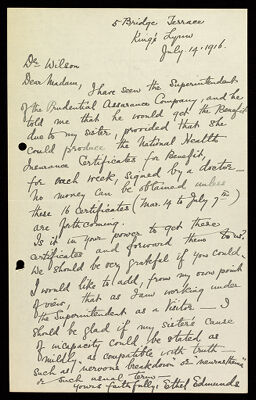 5 Bridge Terrace
King's Lynn
July. 14. 1916.
Dr Wilson
Dear Madam, I have seen the Superintendent
of the Prudential Assurance Company, and he
told me that he would get the Benefit
due to my sister, provided that she
could produce the National Health
Insurance Certificates for Benefit,
for each week, signed by a doctor—
No money can be obtained unless
these 16 Certificates (Mar. 4 to July 7th)
are forthcoming.
Is it in your power to get these
certificates and forward them to us.
We should be very grateful if you could.
I would like to add, from my own point
of view, that as I am working under
the Superintendent as a Visitor — I
should be glad if my sister's cause
of incapacity could be stated as
mildly as compatible with truth —
such as "nervous breakdown" or "neurasthenia"
or such usual term—
Yours faithfully, Ethel Edmunds